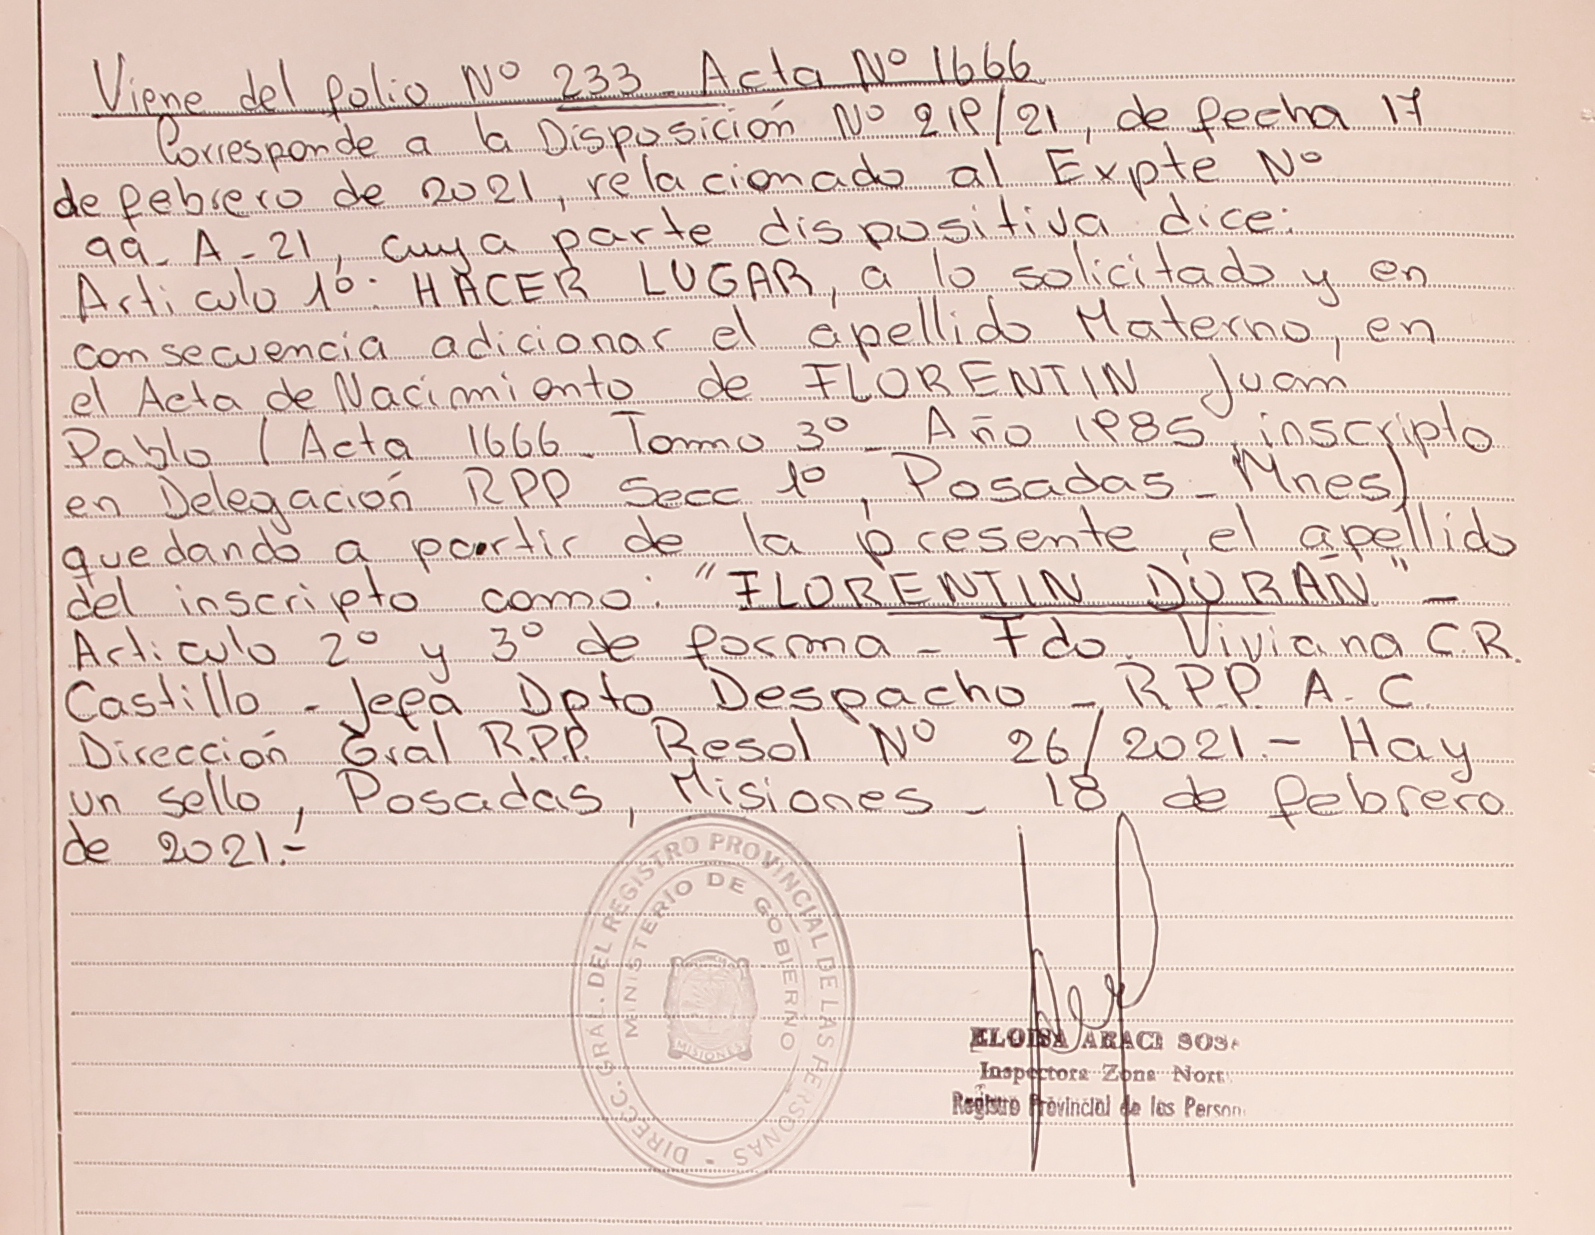 Viene del folio Nº 233 - Acta Nº 1666
Corresponde a la Disposición Nº 219/21, de fecha 17
de febrero de 2021, relacionado al Expte Nº
99 - A - 21, cuya parte dispositiva dice:
Articulo 1º: HACER LUGAR, a lo solicitado y en
consecuencia adicionar el apellido Materno, en
el Acta de Nacimiento de FLORENTIN Juan
Pablo (Acta 1666 - Tomo 3º - Año 1985, inscripto
en Delegación RPP Secc 1º, Posadas - Mnes)
quedando a partir de la presente, el apellido
del inscripto como: "FLORENTIN DURÁN" -
Articulo 2º y 3º de forma - Fdo. Viviana C.R.
Castillo - Jefa Dpto Despacho - R.P.P. A.C.
Dirección Gral R.P.P. Resol Nº 26/2021.- Hay
un sello, Posadas, Misiones - 18 de febrero
de 2021.-
DIRECC. GRAL. DEL REGISTRO PROVINCIAL DE LAS PERSONAS -
MINISTERIO DE GOBIERNO
MISIONES
ELOISA ARACI SOSA
Inspectora Zona Nort
Registro Provincial de las Person